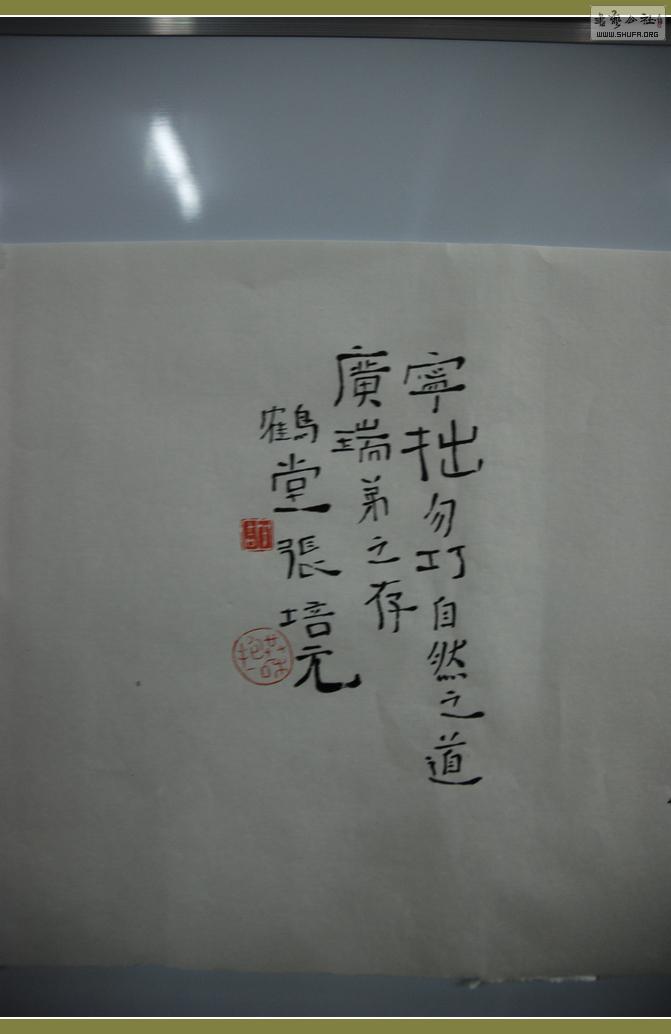 寧拙勿巧自然之道
廣瑞弟之存
鶴堂張培元
書藝公社
WWW.SHUFA.ORG